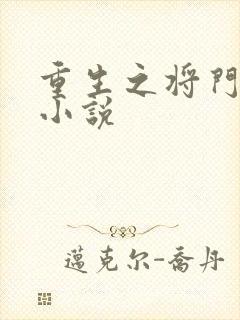 重生之将門
小説
邁克尔-喬丹